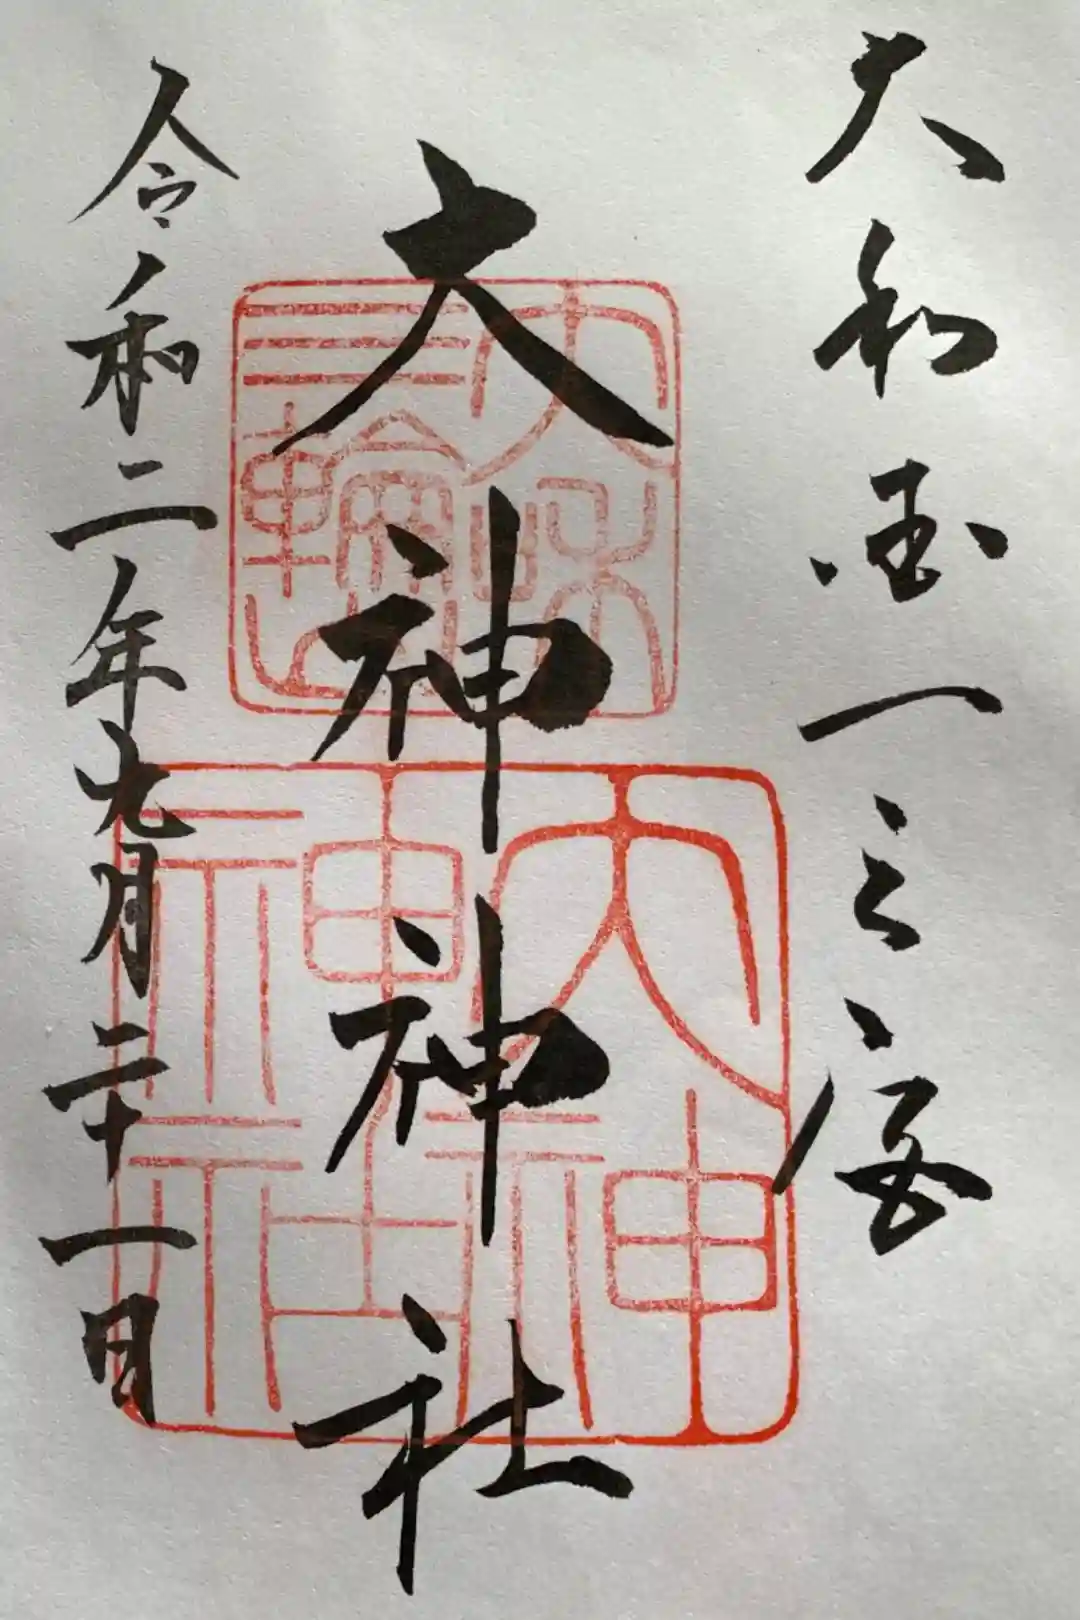 大和国一之宮
大神神社
令和二年九月二十一日
大和
三輪山
大神
神社